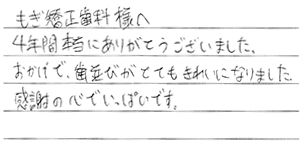 もぎ矯正歯科様へ
4年間本当にありがとうございました。
おかげで、歯並びがとてもきれいになりました。
感謝の心でいっぱいです。